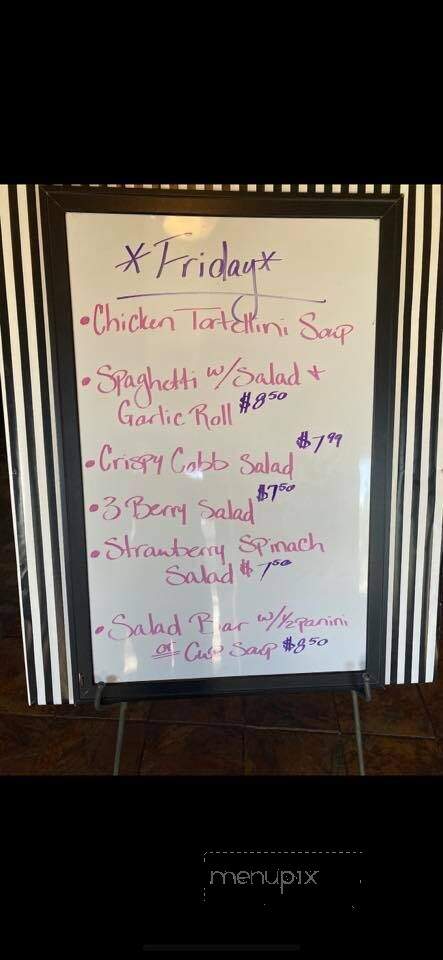 *Friday*
•Chicken Tortellini Soup
•Spaghetti w/Salad +
Garlic Roll $8.50
•Crispy Cobb Salad $7.99
•3 Berry Salad $7.50
•Strawberry Spinach
Salad $7.50
•Salad Bar w/½ panini
or Cup Soup $8.50
menupix